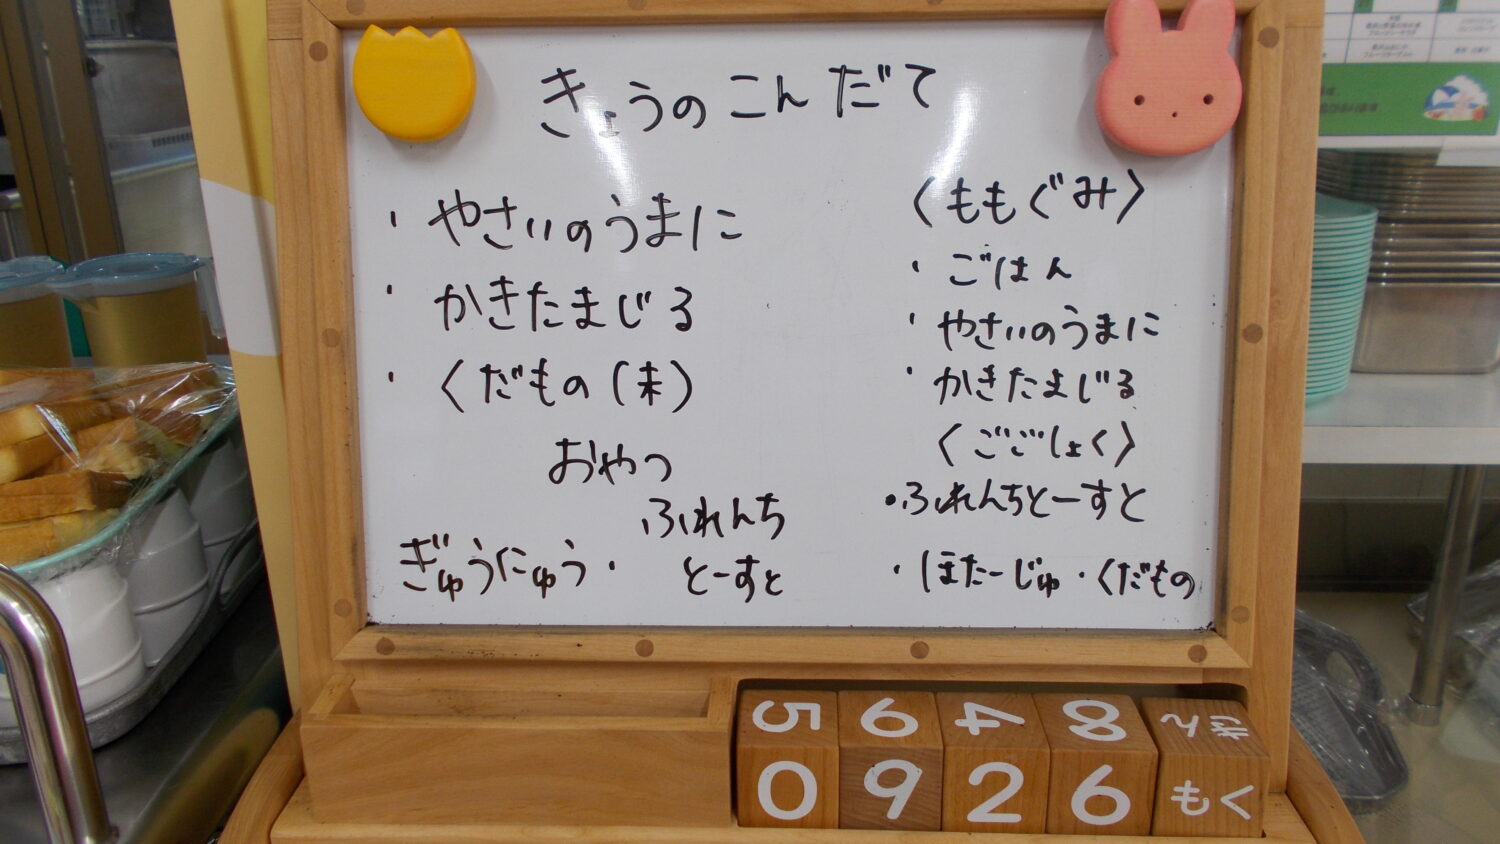 きょうのこんだて
・やさいのうまに
・かきたまじる
・くだもの(未)
おやつ
ぎゅうにゅう・ふれんち
とーすと
〈ももぐみ〉
・ごはん
・やさいのうまに
・かきたまじる
〈ごごしょく〉
・ふれんちとーすと
・ほたーじゅ・くだもの
5 6 4 8 きん
0 9 2 6 もく